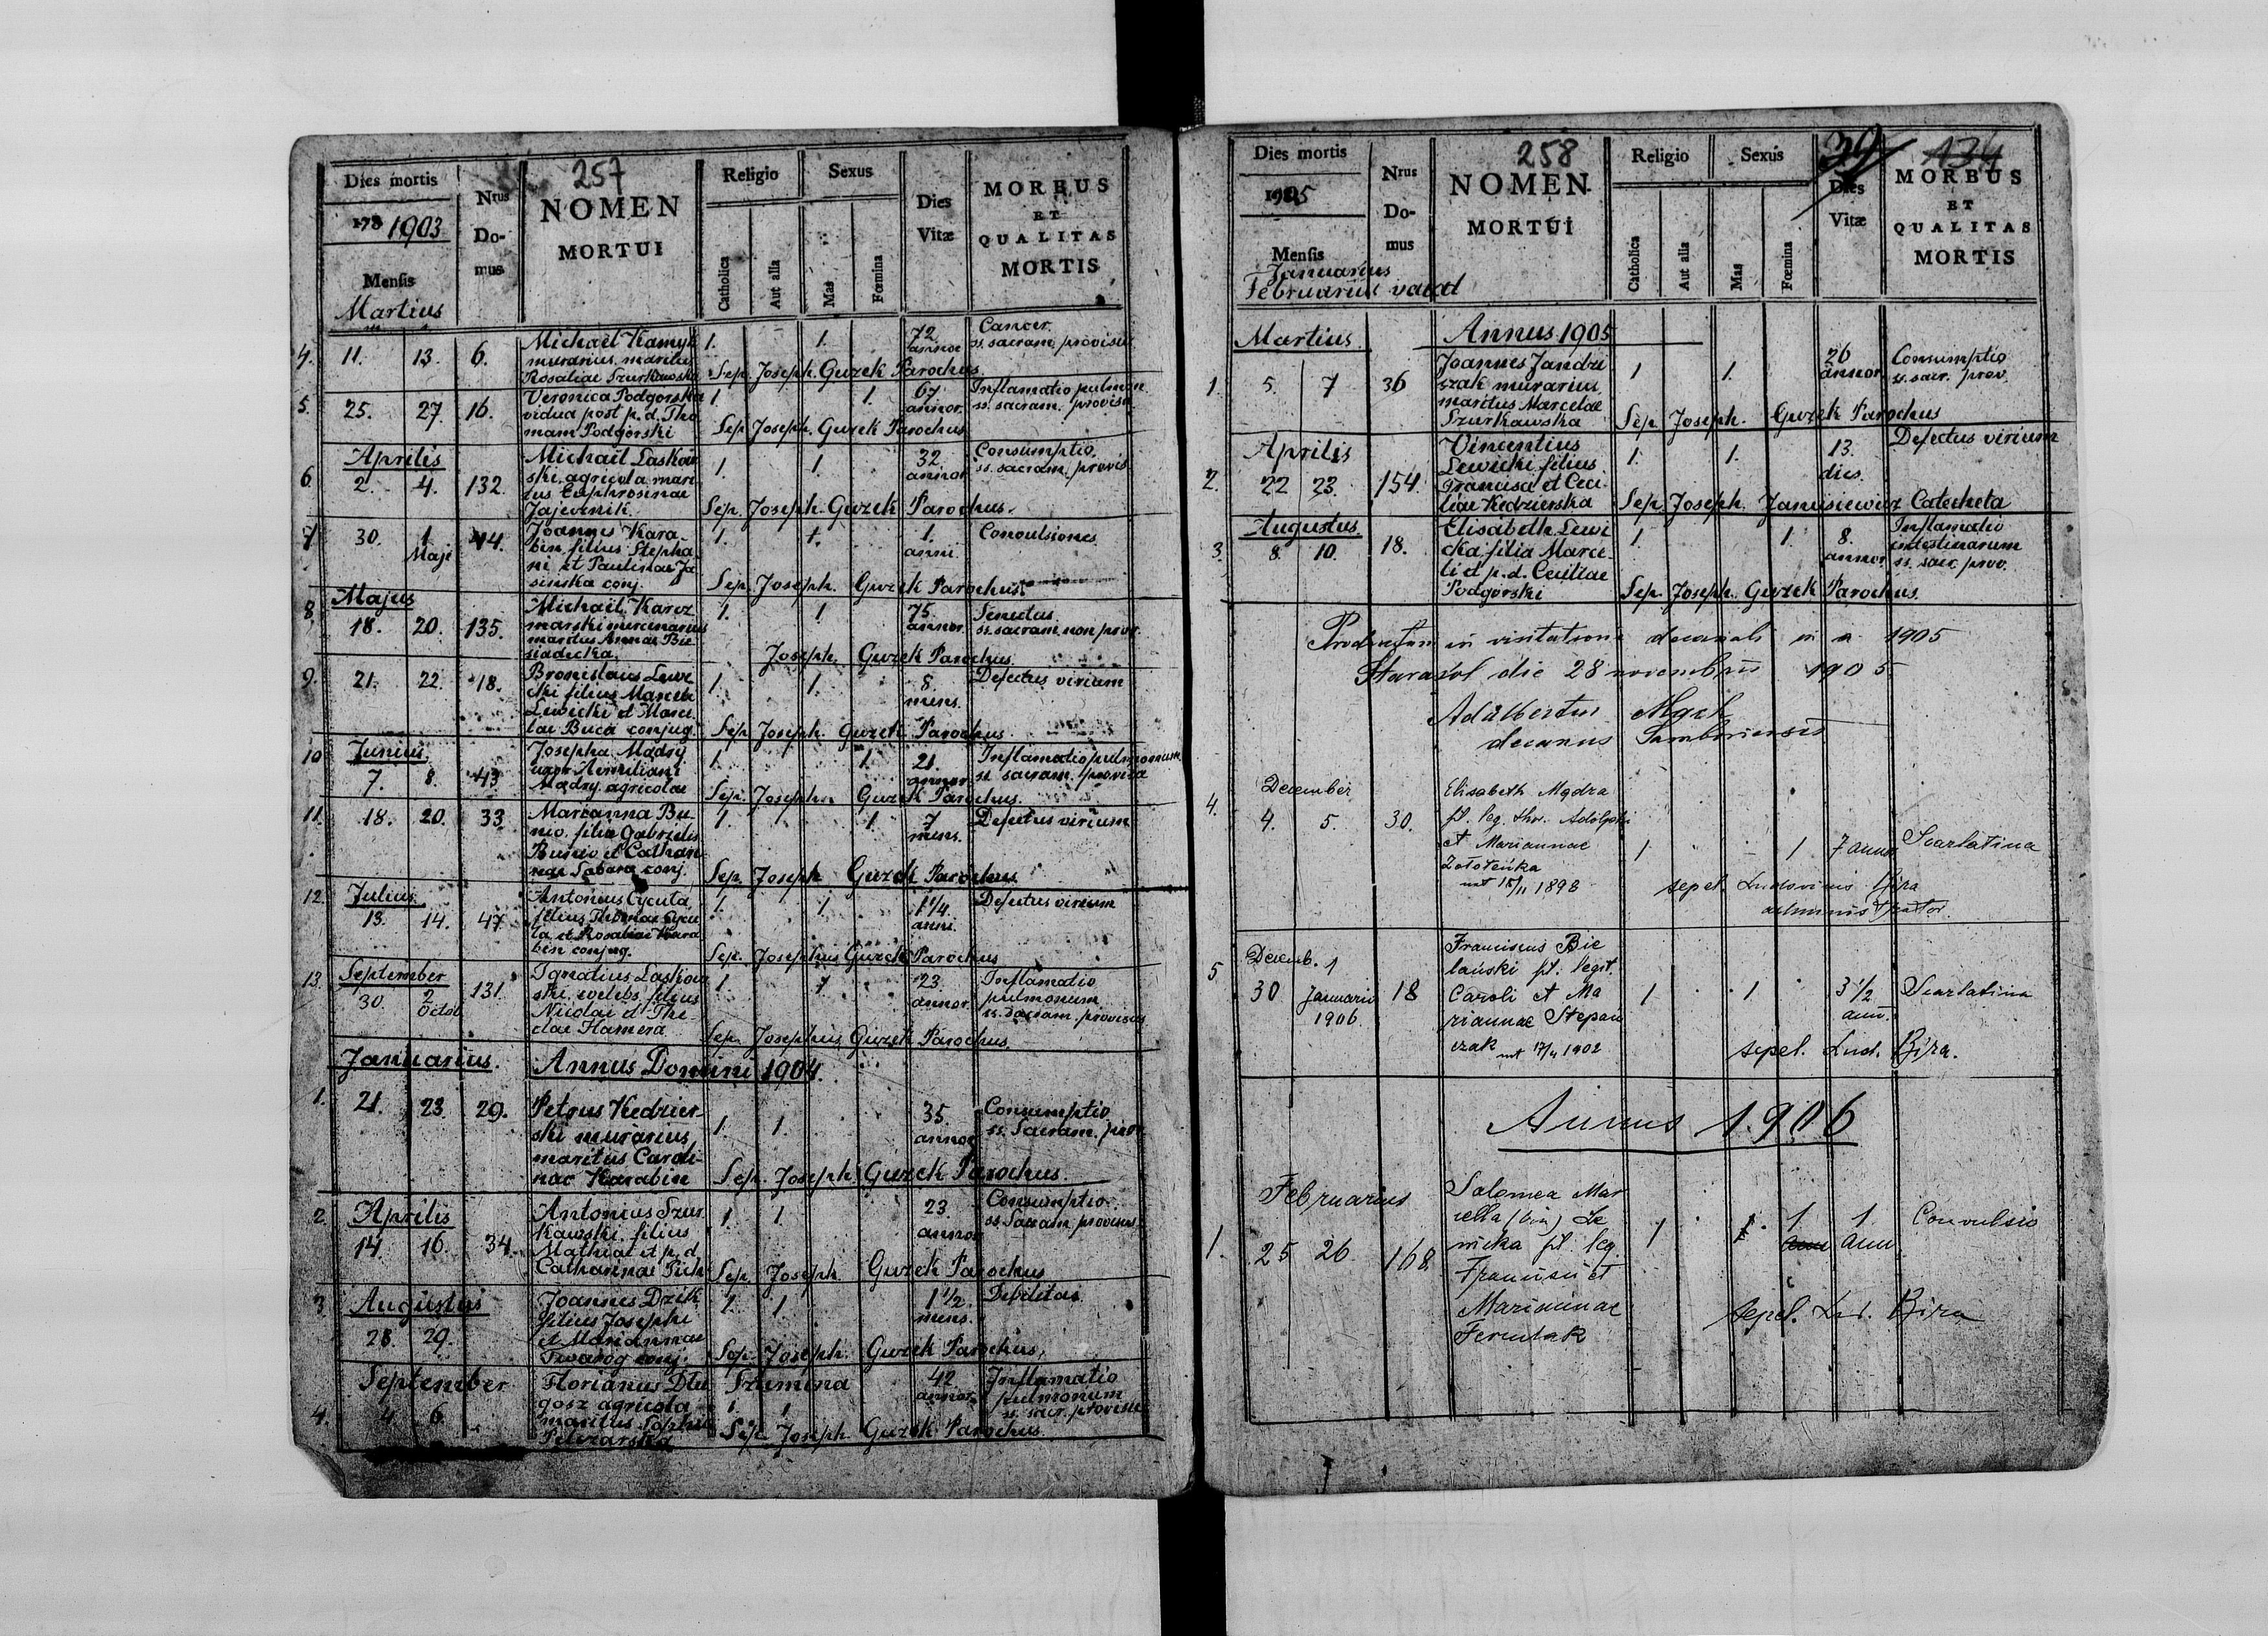 257
Dies mortis
178 1903
Mensis
Martius
Nrus
Do-
mus
NOMEN
MORTUI
Religio
Catholica
Aut alia
Sexus
Mas
Fœmina
Dies
Vitæ
MORBUS
ET
QUALITAS
MORTIS
4. 11. 13. 6. Michael Kamyk 1. 1. 72 Cancer.
murarius, maritus annor ss. sacram. provisus
Rosaliae Szurkawska Sep. Joseph. Guzek Parochus.
5. 25. 27. 16. Veronica Podgorska 1. 1. 67 Inflamatio pulmon.
vidua post p. d. Tho annor. ss. sacram. provisa
mam Podgorski Sep. Joseph. Guzek Parochus
Aprilis
6. 2. 4. 132. Michael Laskow 1. 1. 32. Consumptio.
ski, agricola mari annor ss. sacram. provis.
tus Euphrosinae
Jajecznik. Sep. Joseph. Guzek Parochus.
7. 30. 1 Maji 44. Joannes Kara- 1. 1. 1. Convulsiones
bin, filius Stepha- anni.
ni et Paulinae Ja
sinska conj. Sep. Joseph. Guzek Parochus.
Majus
8. 18. 20. 135. Michael Karcz 1. 1 75. Senectus
marski mercenarius annor. ss. sacram. non prov.
maritus Annae Bie
siadecka. Joseph. Guzek Parochus.
9. 21. 22. 18. Bronislaus Lewi 1. 1. 8. Defectus virium
cki filius Marcelli mens.
Lewicki et Marce
lae Buca conjug. Sep. Joseph. Guzek Parochus.
Junius
10 7. 8. 43 Josepha Mądry 1. 1. 21. Inflamatio pulmonum
uxor Aemiliani annor ss. sacram. provisa
Mądry agricolae Sep. Joseph. Guzek Parochus.
11. 18. 20. 33. Marianna Bu 1. 1 7 Defectus virium
nio. filia Gabrielis mens.
Bunio et Cathari
nae Sabara conj. Sep. Joseph Guzek Parochus
Julius
12. 13. 14. 47 Antonius Cycuta 1. 1 1 1/4. Defectus virium
filius Thomae Cycu anni.
ta et Rosaliae Kara
bin conjug. Sep. Josephus Guzek Parochus
September
13. 30. 2 Octob 131. Ignatius Laskow 1. 1 23. Inflamatio
ski. coelebs, filius annor. pulmonum
Nicolai et The- ss. sacram. provisus
clae Hamera Sep. Josephus Guzek Parochus.
Januarius. Annus Domini 1904.
1. 21. 23. 29. Petrus Kedzier- 1. 1. 35. Consumptio
ski murarius, annor ss. Sacram. prov.
maritus Caroli-
nae Karabin Sep. Joseph Guzek Parochus.
Aprilis
2. 14. 16. 34. Antonius Szur 1. 1. 23. Consumptio.
kawski. filius annor ss. Sacram. provisus
Mathiae et p. d.
Catharinae Pich Sep. Joseph. Guzek Parochus
Augustus
3 28. 29. Joannes Dzik 1. 1 1 1/2. Debilitas
filius Josephi mens.
et Mariannae
Twarog conj. Sep. Joseph. Guzek Parochus.
September
4. 4. 6. Florianus Dłu Szumina 42. Inflamatio
gosz agricola 1. 1 annor. pulmonum
maritus Sophiae ss. sacr. provisus
Pelczarska Sep. Joseph. Guzek Parochus.
258
39
134
Dies mortis
1905
Mensis
Januarius
Februarius vacat
Nrus
Do-
mus
NOMEN
MORTUI
Religio
Catholica
Aut alia
Sexus
Mas
Fœmina
Dies
Vitæ
MORBUS
ET
QUALITAS
MORTIS
Martius Annus 1905
1. 5. 7 36 Joannes Jandzi 1 1. 26 Consumptio
szak murarius annor. ss. sacr. prov.
maritus Marcelae
Szurkawska Sep. Joseph. Guzek Parochus
Aprilis
2. 22 23. 154. Vincentius 1. 1. 13. Defectus virium
Lewicki filius dies.
Francisci et Ceci-
liae Kedzierska Sep. Joseph. Janusiewicz Catecheta
Augustus
3. 8. 10. 18. Elisabeth Lewi 1. 1. 8. Inflamatio
cka filia Marce- annor intestinarum
li et p. d. Ceciliae ss. sacr. prov.
Podgorski Sep. Joseph. Guzek Parochus.
in visitatione decanali in a 1905
Starasol die 28 novembris 1905
Adalbertus
decanus Samboriensis
December
4. 4. 5. 30. Elisabeth Mądra
fil. leg. thor. Adolphi
et Mariannae 1 1 7 annor Scarlatina
Zototeńka
nat 15/11 1898 sepel. Ludovicus Bira
administrator.
5 Decemb. 30 1 Januario 1906 18 Franciscus Bie
lański fil. legit.
Caroli et Ma 1 1 3 1/2 Scarlatina
riannae Stepan ann.
czak nat 17/4 1902 sepel. Lud. Bira.
Annus 1906
Februarius
1. 25 26 168 Salomea Mar
cella (bin) Le 1 1 1. Convulsio
nicka fil. leg. ann.
Francisci et
Mariannae sepel. Lud. Bira